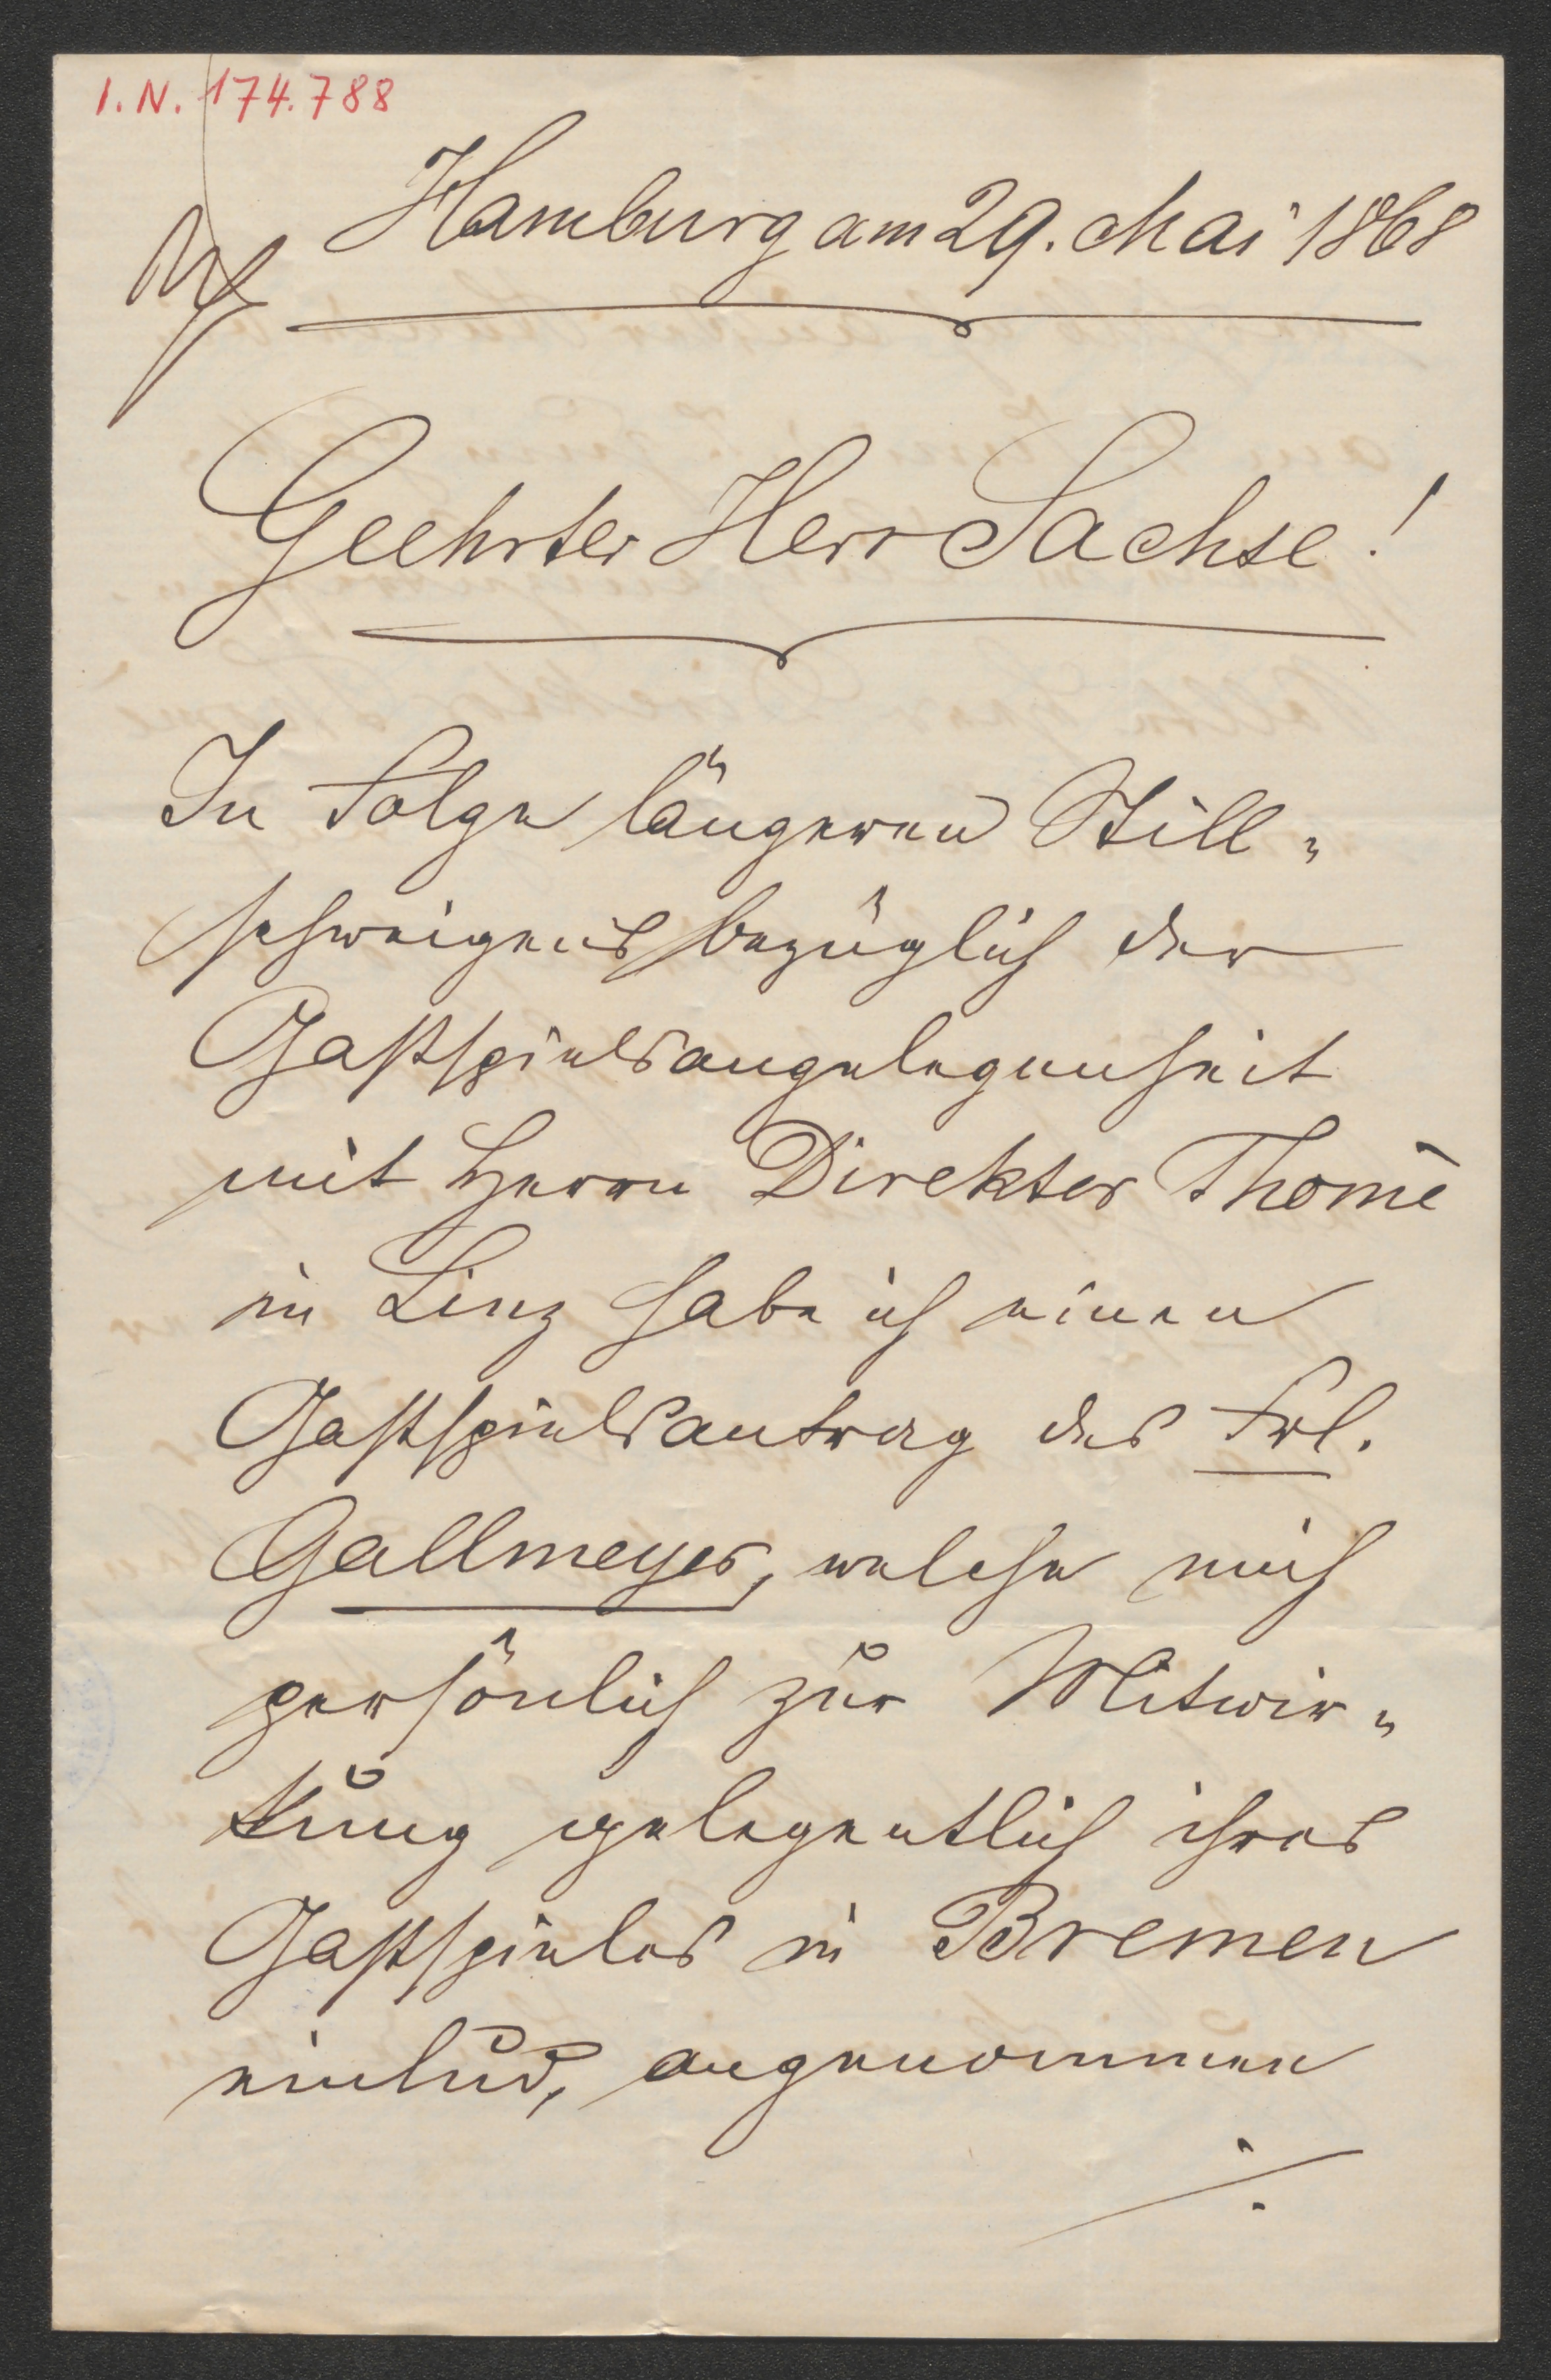 I.N. 174.788
Hamburg am 29. Mai 1868
Geehrter Herr Sachse!
In Folge längeren Still-
schweigens bezüglich der
Gastspielsangelegenheit
mit Herrn Direktor Thomé
in Linz habe ich einen
Gastspielsantrag des Frl.
Gallmeyer, welche mich
persönlich zur Mitwir-
kung gelegentlich ihres
Gastspieles in Bremen
einlud, angenommen
./.